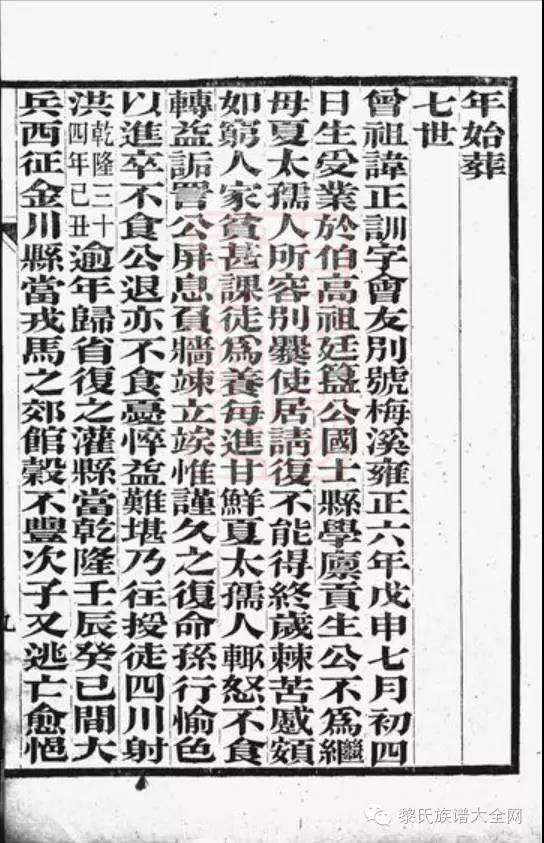 年始葬
七世
曾祖諱正訓字會友別號梅溪雍正六年戊申七月初四
日生受業於伯高祖廷簋公國士縣學廩貢生公不爲繼
母夏太孺人所容別爨使居請復不能得終歲棘苦慼頞
如窮人家貧甚課徒爲養每進甘鮮夏太孺人輙怒不食
轉益詬詈公屏息負牆竦立竢惟謹久之復命孫行愉色
以進卒不食公退亦不食憂悴益難堪乃往授徒四川射
洪乾隆三十四年己丑逾年歸省復之灌縣當乾隆壬辰癸巳間大
兵西征金川縣當戎馬之郊館穀不豐次子又逃亡愈悒
九
黎氏族谱大全网